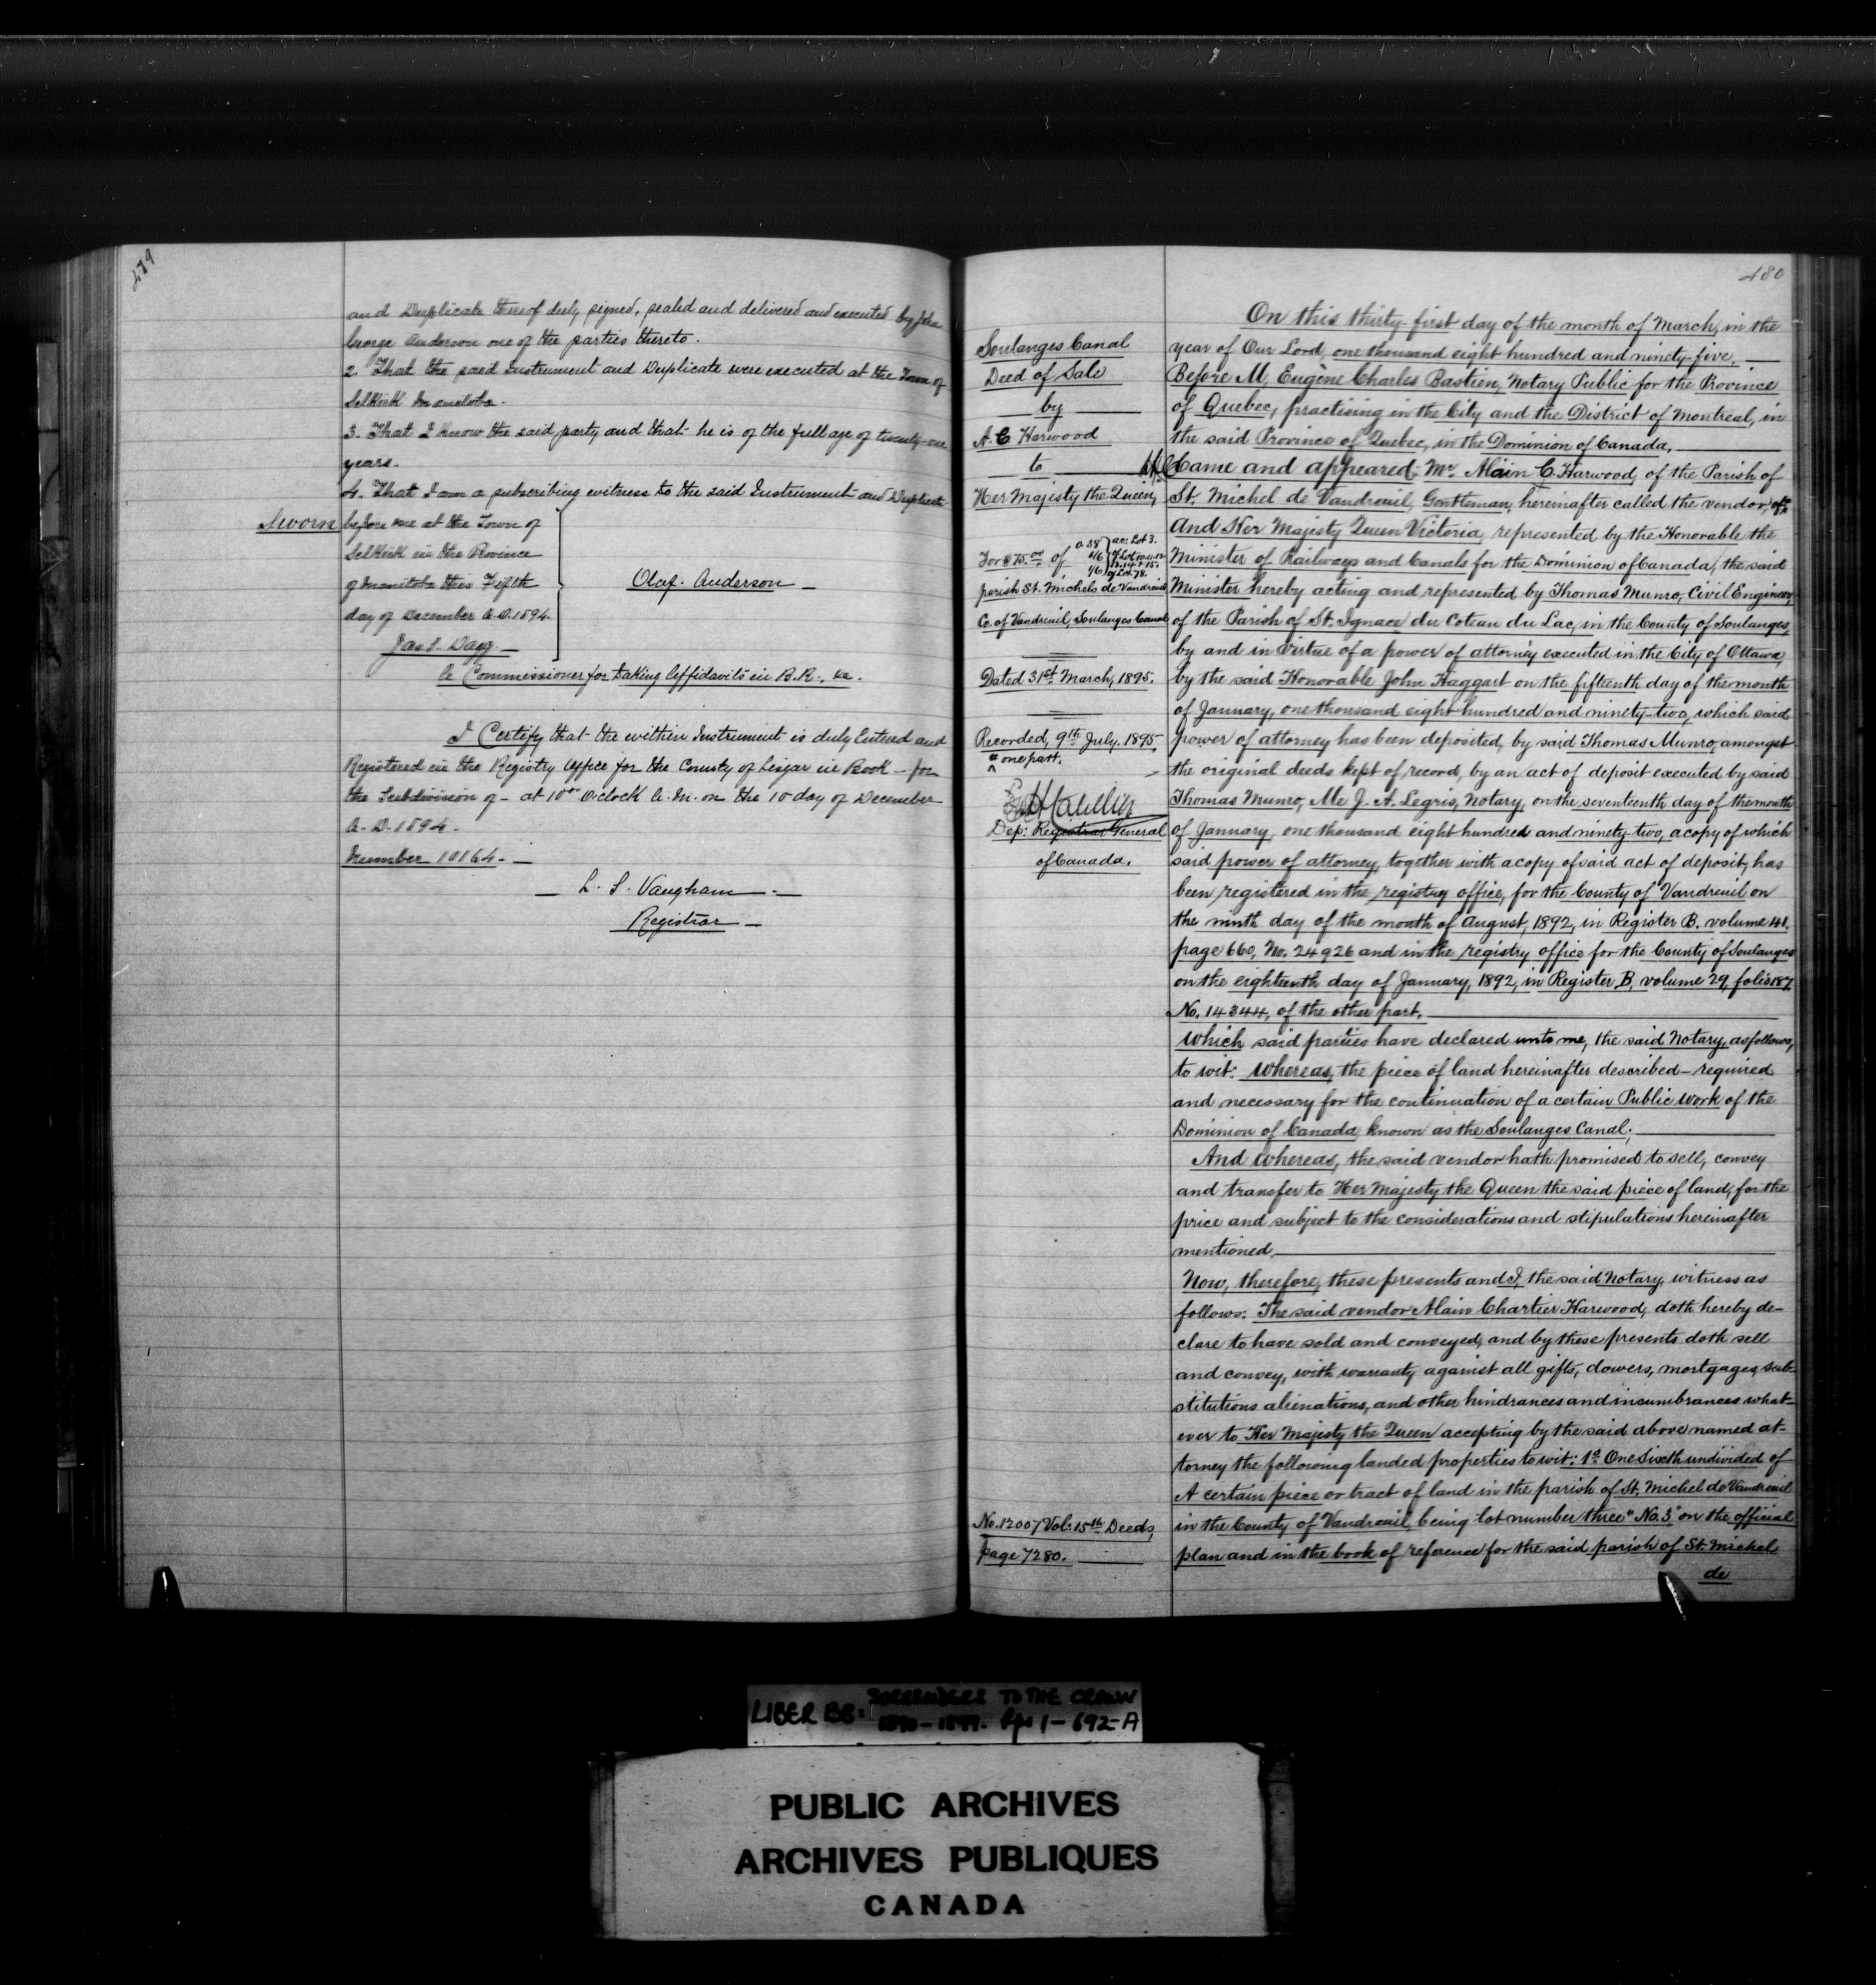 479
and Duplicate thereof duly signed, sealed and delivered and executed by John
George Anderson one of the parties thereto.
2. That the said Instrument and Duplicate were executed at the Town of
Selkirk Manitoba.
3. That I know the said party and that he is of the full age of twenty-one
years.
4. That I am a subscribing witness to the said Instrument and Duplicate
Sworn before me at the Town of
Selkirk in the Province
of Manitoba this Fifth
day of December A.D. 1894.
Olaf. Anderson
Jas. S. Dagg
A Commissioner for taking Affidavits in B.R., &c.
I Certify that the within Instrument is duly Entered and
Registered in the Registry Office for the County of Lisgar in Book - for
the Subdivision of - at 10 O'clock A.M. on the 10 day of December
A.D. 1894.
Number 10164.
L. S. Vaughan
Registrar
480
Soulanges Canal
Deed of Sale
by
A. C Harwood
to
Her Majesty the Queen,
For $75.00 of
0.38 ac: Lot 3.
1/6 of Lot 10-11-12
1/6 of Lot 78.
parish St. Michel de Vaudreuil
Co. of Vaudreuil, Soulanges Canal
Dated 31st March, 1895.
Recorded, 9th July. 1895,
# one part.
Dep: Registrar General
of Canada.
No. 12007 Vol: 15th Deeds,
page 7280.
On this thirty-first day of the month of March, in the
year of Our Lord, one thousand eight hundred and ninety-five,
Before M, Eugène Charles Bastien, Notary Public for the Province
of Quebec, practising in the City and the District of Montreal, in
the said Province of Quebec, in the Dominion of Canada,
Came and appeared: Mr Alain C. Harwood, of the Parish of
St. Michel de Vaudreuil, Gentleman, hereinafter called the vendor of #
And Her Majesty Queen Victoria, represented by the Honorable the
Minister of Railways and Canals for the Dominion of Canada, the said
Minister hereby acting and represented by Thomas Munro, Civil Engineer,
of the Parish of St. Ignace du Coteau du Lac, in the County of Soulanges,
by and in virtue of a power of attorney executed in the City of Ottawa,
by the said Honorable John Haggart on the fifteenth day of the month
of January, one thousand eight hundred and ninety-two, which said
power of attorney has been deposited, by said Thomas Munro, amongst
the original deeds kept of record, by an act of deposit executed by said
Thomas Munro, Me J. A. Legris, Notary, on the seventeenth day of the month
of January, one thousand eight hundred and ninety-two, a copy of which
said power of attorney, together with a copy of said act of deposit, has
been registered in the registry office, for the County of Vaudreuil on
the ninth day of the month of August, 1892, in Register B. volume 41.
page 660, No. 24926 and in the registry office for the County of Soulanges
on the eighteenth day of January, 1892, in Register, B, volume 29, folio 187
No. 14344, of the other part.
Which said parties have declared unto me, the said Notary, as follows,
to wit: Whereas, the piece of land hereinafter described - required
and necessary for the continuation of a certain Public Work of the
Dominion of Canada, known as the Soulanges Canal;
And whereas, the said vendor hath promised to sell, convey
and transfer to Her Majesty the Queen the said piece of land, for the
price and subject to the considerations and stipulations hereinafter
mentioned.
Now, therefore, these presents and I, the said Notary, witness as
follows: The said vendor Alain Chartier Harwood, doth hereby de-
clare to have sold and conveyed, and by these presents doth sell
and convey, with warranty against all gifts, dowers, mortgages, sub-
stitutions alienations, and other hindrances and incumbrances what-
ever to Her Majesty the Queen accepting by the said above named at-
torney the following landed properties to wit: 1o One Sixth undivided of
A certain piece or tract of land in the parish of St. Michel de Vaudreuil
in the County of Vaudreuil, being lot number three "No. 3" on the official
plan and in the book of reference for the said parish of St. Michel
de
LIBER BB: SURRENDERS TO THE CROWN
1890-1899. Pps 1-692-A
PUBLIC ARCHIVES
ARCHIVES PUBLIQUES
CANADA